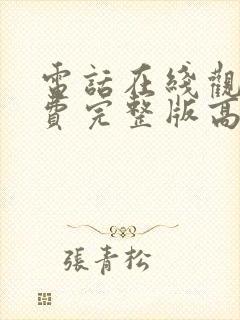 電話在綫觀
費完整版高
張青松